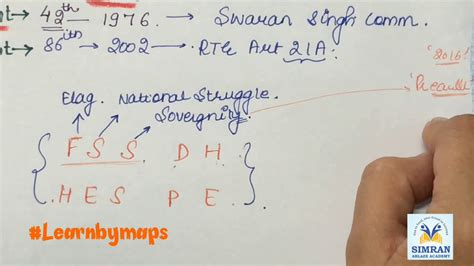 → 42th → 1976. → Swaran Singh Comm.
→ 86ith → 2002 → RTE Art 21A.
'2016'
Elag. National Struggle.
Sovergnity
F S S D H
H E S P E
#Learnbymaps
SIMRAN
ABLAZE ACADEMY